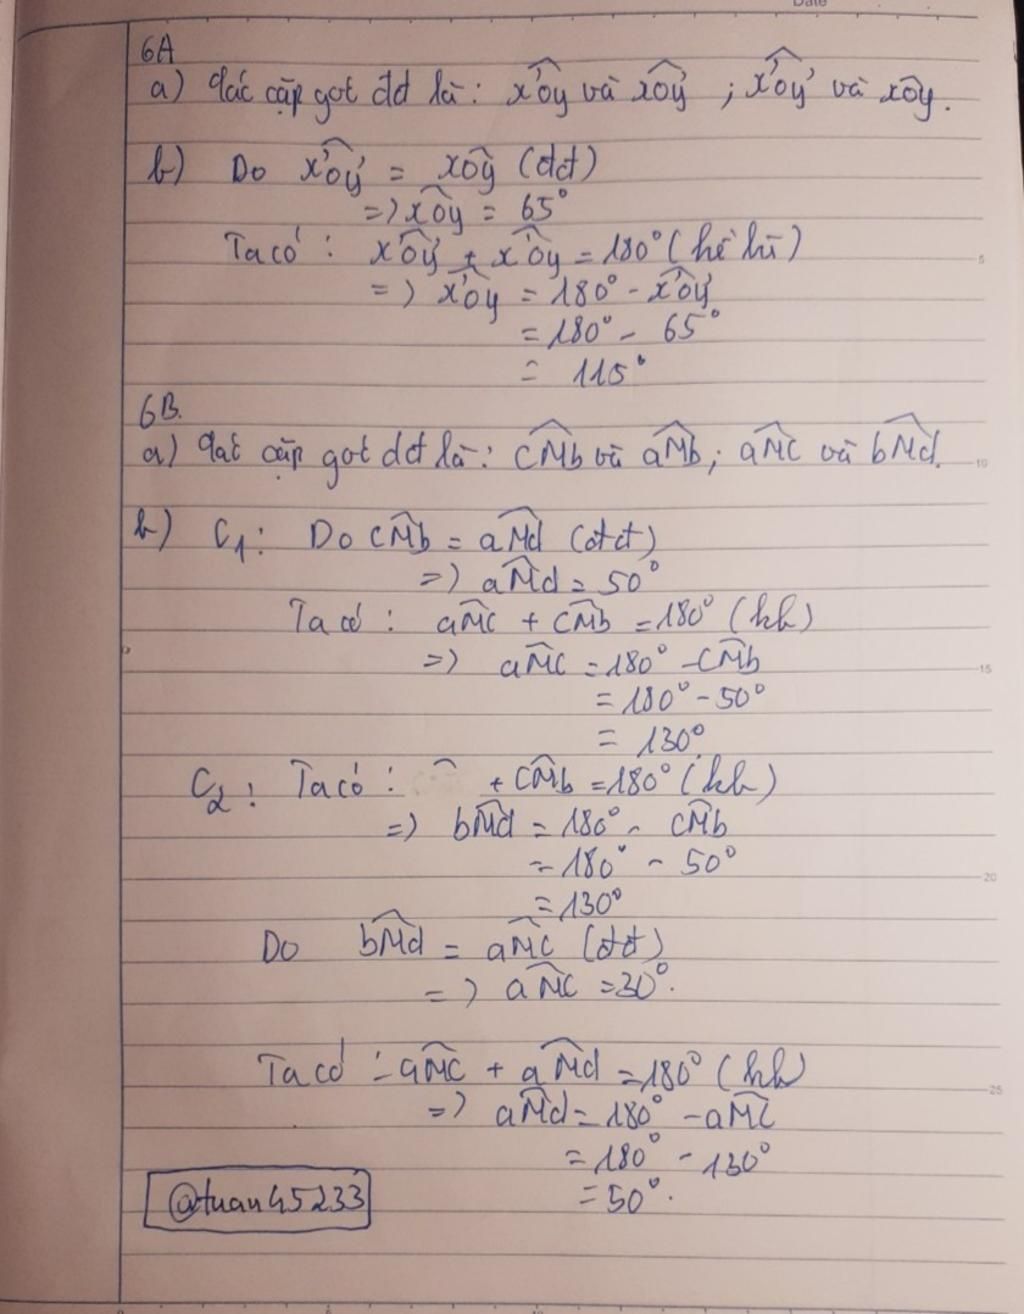 Date
6A
a) Các cặp goc đđ là: x'Oy và xOy' ; x'Oy' và xOy.
b) Do x'Oy' = xOy (đđ)
=> xOy = 65°
Ta có : x'Oy' + x'Oy = 180° (kề bù)
=> x'Oy = 180° - x'Oy'
= 180° - 65°
= 115°
6B.
a) Các cặp goc đđ là: cMb và aMb; aMc và bMd.
b) C1: Do cMb = aMd (đđ)
=> aMd = 50°
Ta có : aMc + cMb = 180° (kb)
=> aMc = 180° - cMb
= 180° - 50°
= 130°
C2: Ta có : + cMb = 180° (kb)
=> bMd = 180° - cMb
= 180° - 50°
= 130°
Do bMd = aMc (đđ)
=> aMc = 30°.
Ta có : aMc + aMd = 180° (kb)
=> aMd = 180° - aMc
= 180° - 130°
= 50°.
@tuan45233